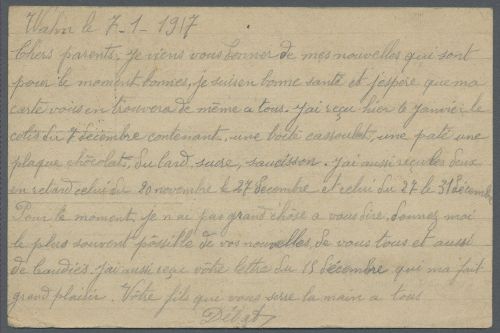 Wahn le 7-1-1917
Chers parents, je viens vous donner de mes nouvelles qui sont
pour le moment bonnes, je suis en bonne santé et j'espère que ma
carte vous en trouvera de même a tous. j'ai reçu hier le janvier le
colis du 7 décembre contenant, une boite cassoulet, une paté une
plaque chocolat, du lard, sucre, saucisson. j'ai aussi reçu les deux
en retard celui du 20 novembre le 27 décembre et celui du 27 le 31 décembre
Pour le moment, je n'ai pas grand chose a vous dire, donnez moi
le plus souvent possible de vos nouvelles, de vous tous et aussi
de j'ai aussi reçu vôtre lettre du 15 décembre qui ma fait
grand plaisir. Votre fils qui vous serre la main a tous
Débat